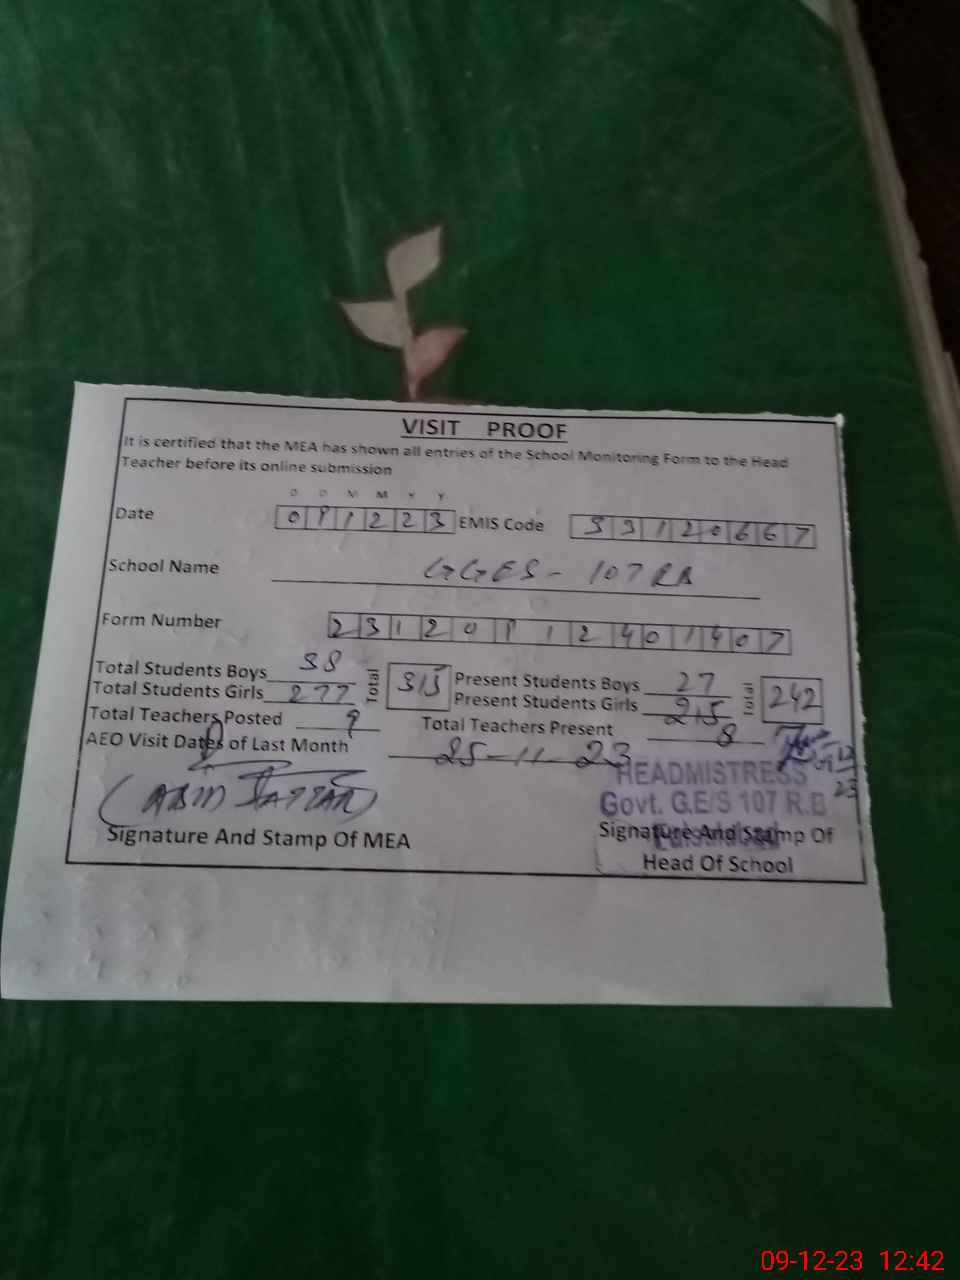 VISIT PROOF
It is certified that the MEA has shown all entries of the School Monitoring Form to the Head
Teacher before its online submission
D D M M Y Y
Date 091223 EMIS Code 33120667
School Name GGES - 107 RB
Form Number 231209124001407
Total Students Boys 38 Total 315 Present Students Boys 27 Total 242
Total Students Girls 277 Present Students Girls 215
Total Teachers Posted 9 Total Teachers Present 8
AEO Visit Dates of Last Month 25-11-23
HEADMISTRESS
Govt. G.E/S 107 R.B
Signature And Stamp Of MEA Signature And Stamp Of
Head Of School
09-12-23 12:42